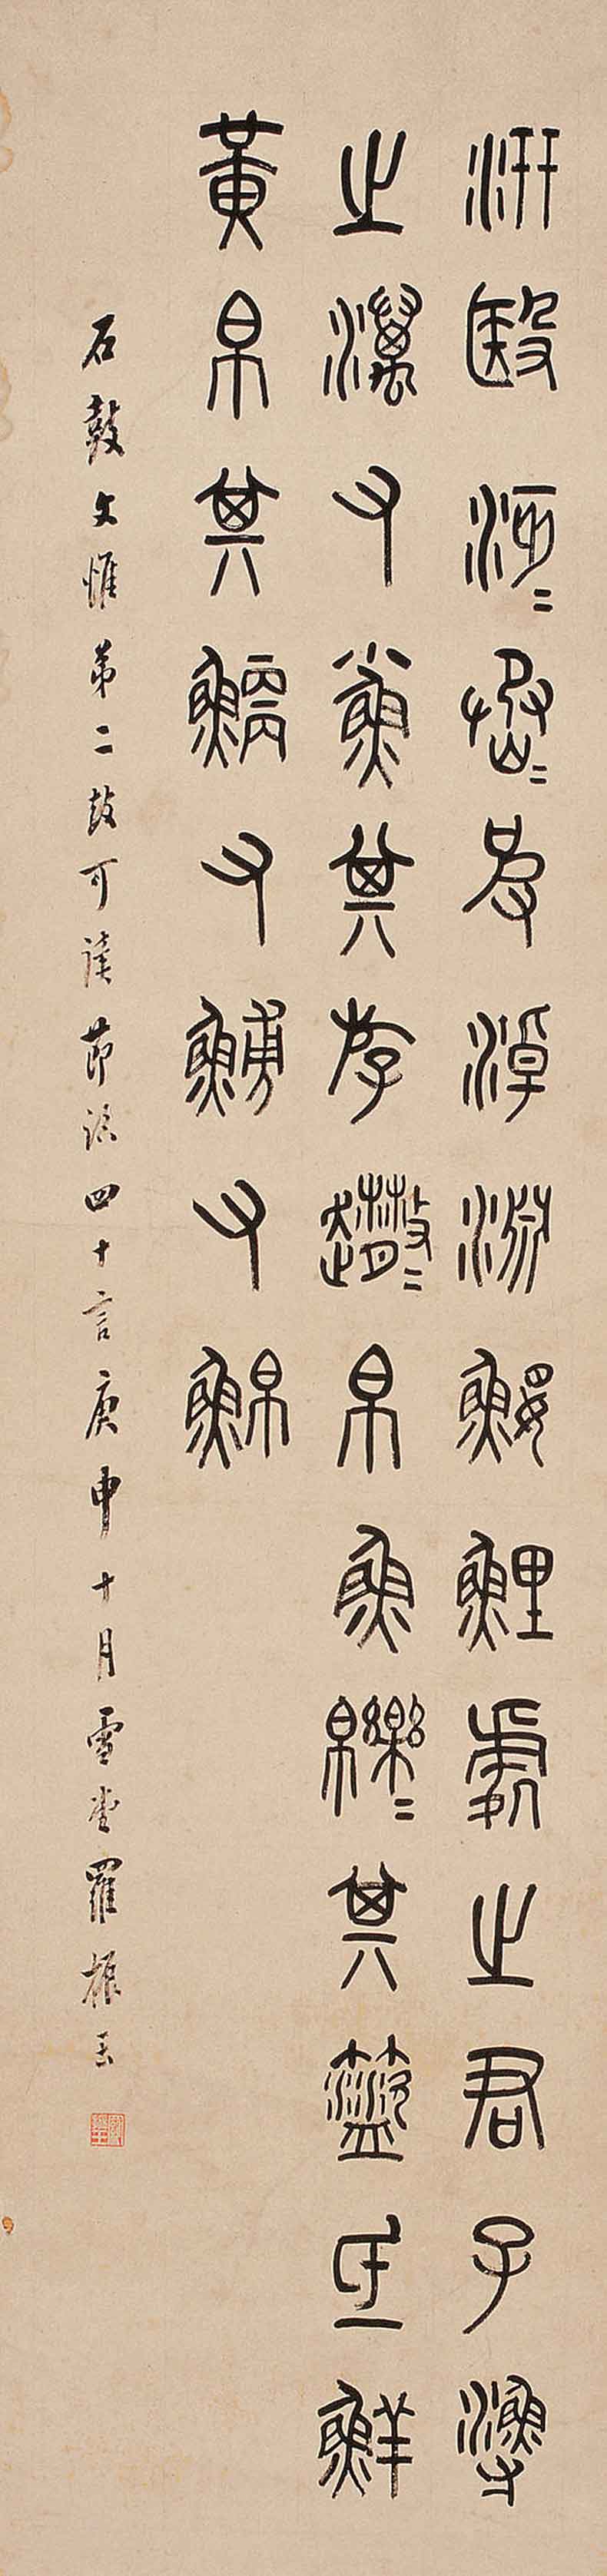 汧殹沔=丞=皮淖淵鰋鯉處之君子漁
之澫又小魚其斿趣=帛魚皪=其盜氐鮮
黃帛其鯾又䱐又鮊
石鼓文惟第二鼓可讀節臨四十言庚申十月雪堂羅振玉